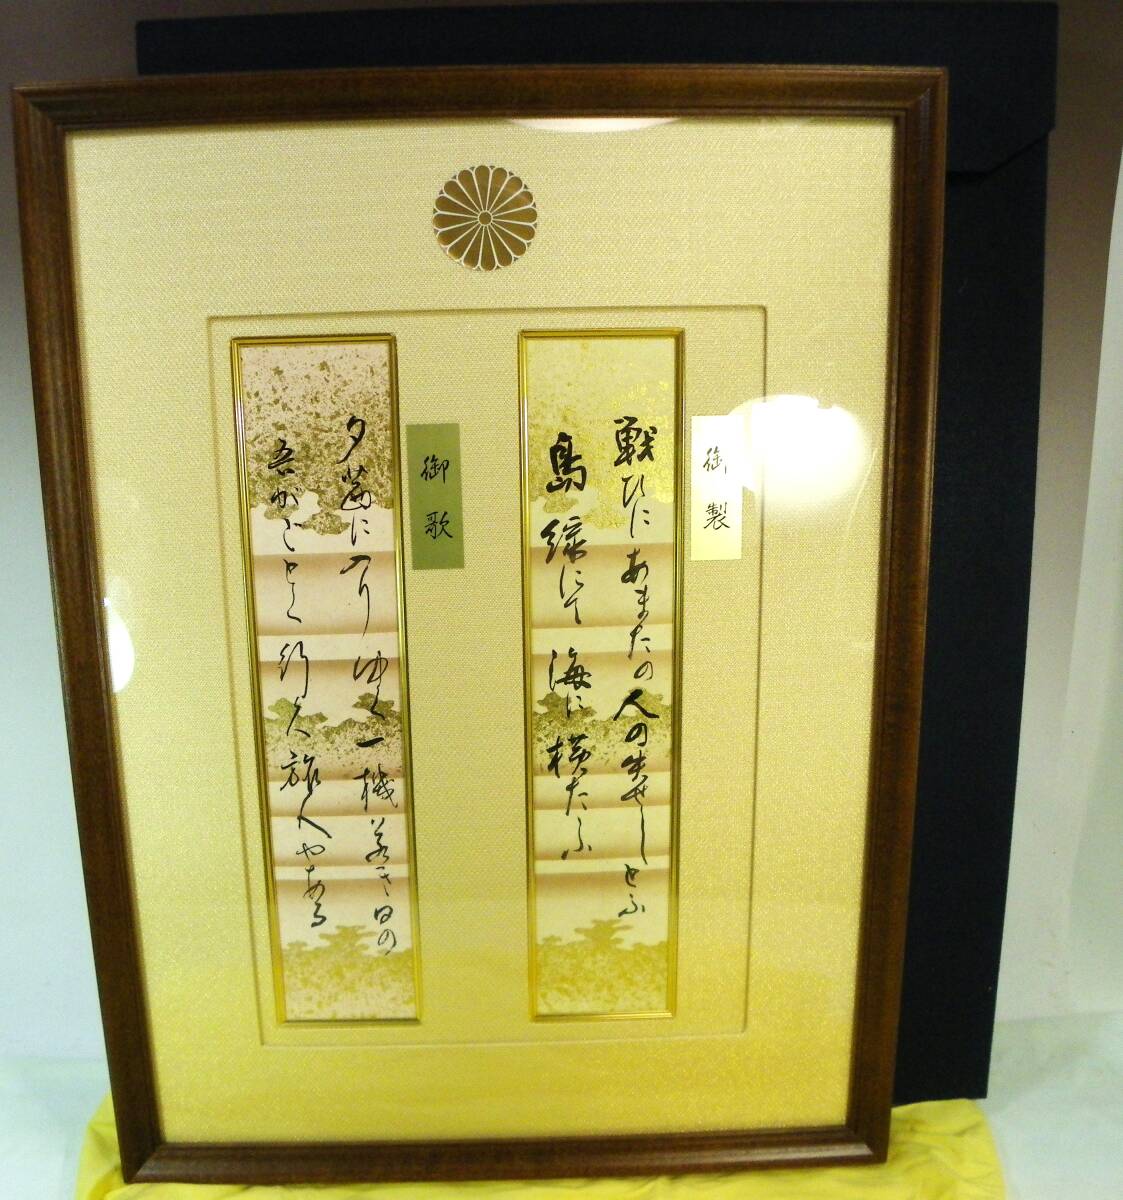 御製
戦ひにあまたの人の失せしとふ
島緑にて海に横たふ
御歌
夕茜に入りゆく一機若き日の
吾がごとく行く旅人やある